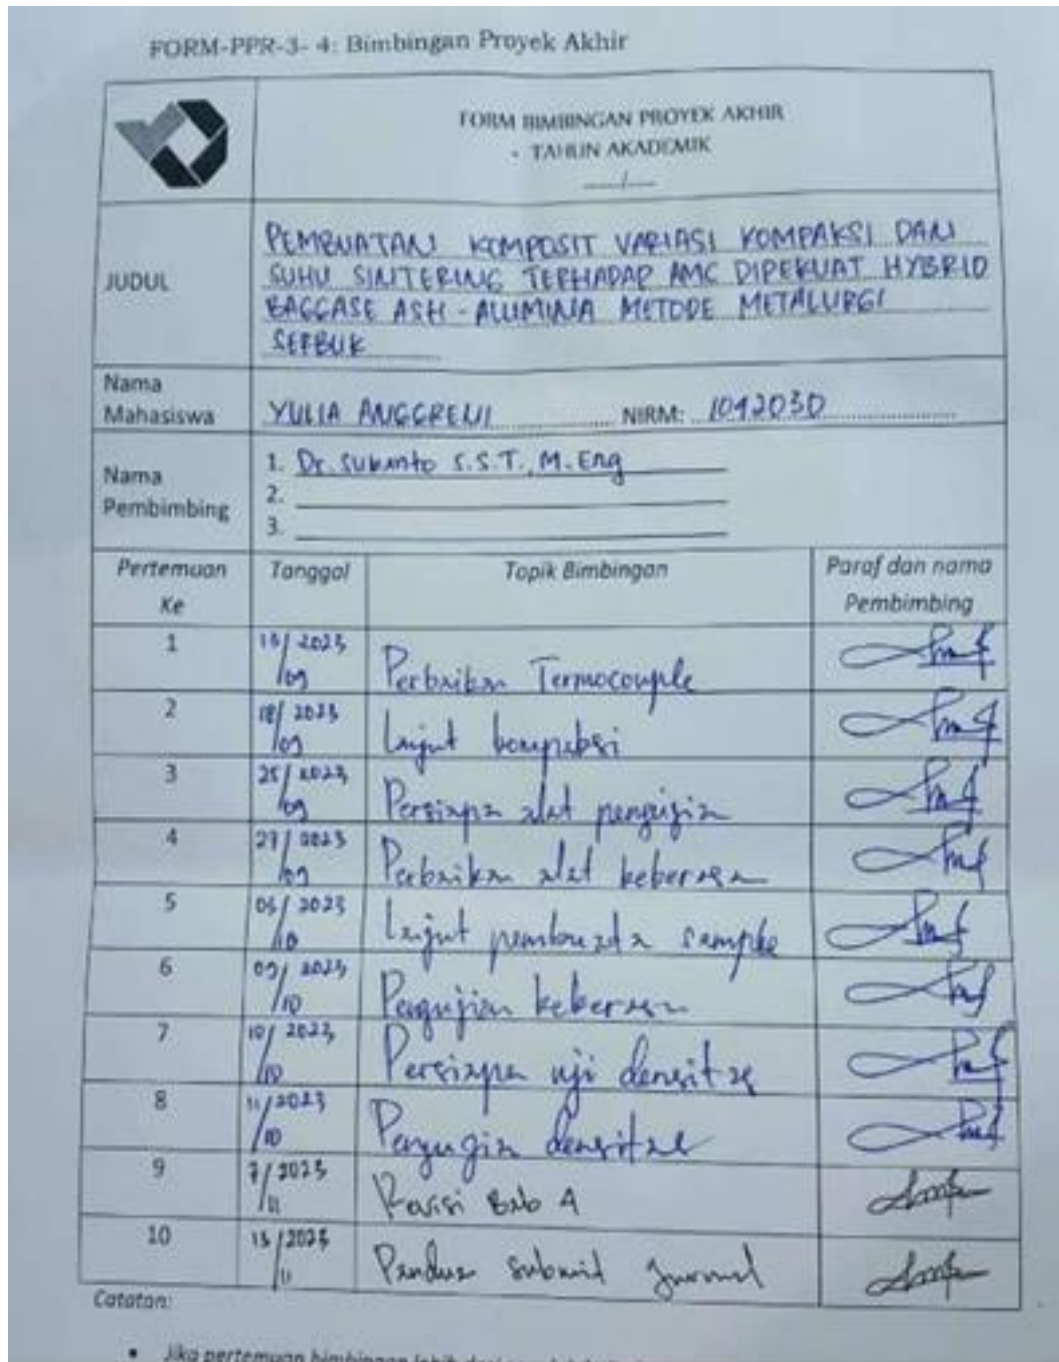 FORM-PPR-3- 4: Bimbingan Proyek Akhir
FORM BIMBINGAN PROYEK AKHIR
- TAHUN AKADEMIK
/
JUDUL
PEMBUATAN KOMPOSIT VARIASI KOMPAKSI DAN
SUHU SINTERING TERHADAP AMC DIPERKUAT HYBRID
BAGGASE ASH - ALUMINA METODE METALURGI
SERBUK
Nama
Mahasiswa
YULIA ANGGRENI NIRM: 1042030
Nama
Pembimbing
1. Dr. Sukanto S.S.T., M.Eng
2.
3.
Pertemuan
Ke
Tanggal
Topik Bimbingan
Paraf dan nama
Pembimbing
1 2023 /09 Perbaikan Termocouple
2 18/ 2023 /09 Lanjut kompaksi
3 25/ 2023 /09 Persiapan alat pengujian
4 27/ 2023 /09 Perbaikan alat kekerasan
5 2023 /10 Lanjut pembuatan sampke
6 09/ 2023 /10 Pengujian kekerasan
7 10/ 2023 /10 Persiapan uji densitas
8 11/2023 /10 Pengujian densitas
9 7/2023 /11 Revisi Bab 4
10 2023 /11 submit Jurnal
Catatan:
• Jika pertemuan bimbingan lebih dari